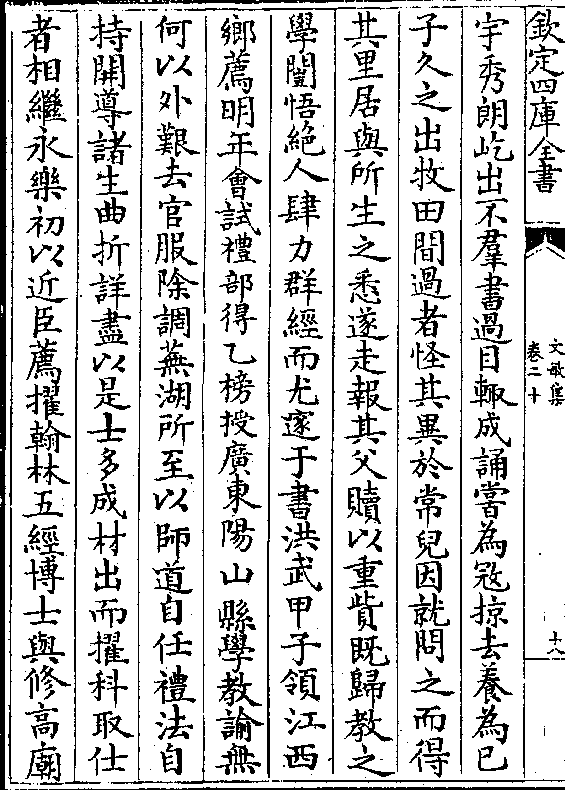 欽定四庫全書
文敏集
卷二十
十八
宇秀朗屹出不羣書過目輙成誦嘗為宼掠去養為已
子久之出牧田間過者怪其異於常兒因就問之而得
其里居與所生之悉遂走報其父贖以重貲既歸教之
學闓悟絕人肆力群經而尤邃于書洪武甲子領江西
鄉薦明年會試禮部得乙榜授廣東陽山縣學教諭無
何以外艱去官服除調蕪湖所至以師道自任禮法自
持開導諸生曲折詳盡以是士多成材出而擢科取仕
者相繼永樂初以近臣薦擢翰林五經博士與修高廟